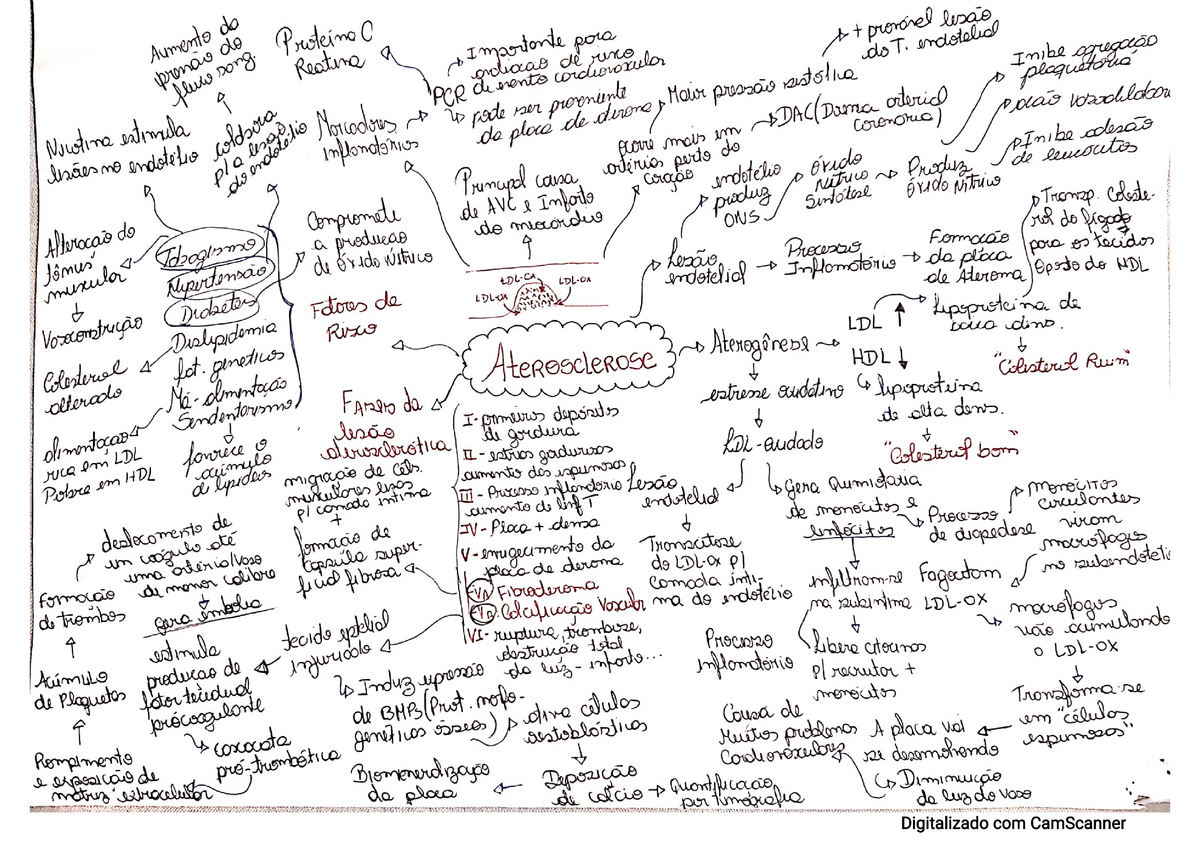 Aumento da
pressão do
fluxo sang.
Proteína C
Reativa
Importante para
avaliação de risco
de evento cardiovascular
PCR
pode ser proveniente
da placa de ateroma
Marcadores
Inflamatórios
Nicotina estimula
lesões no endotélio
colabora
p/ a lesão
do endotélio
Maior pressão sistólica
+ provável lesão
do T. endotelial
Ocorre mais em
artérias perto do
coração
DAC (Doença arterial
Coronária)
Principal causa
de AVC e Infarto
do miocárdio
endotélio
produz
ONS
Óxido
Nítrico
Sintase
Produz
Óxido Nítrico
Inibe agregação
plaquetária
ação vasodilatadora
Inibe adesão
de leucócitos
Alteração do
tônus
muscular
Vasoconstrução
Tabagismo
Hipertensão
Diabetes
Dislipidemia
fat. genéticos
Má-alimentação
Sendentarismo
Compromete
a produção
de Óxido Nítrico
Fatores de
Risco
Colesterol
alterado
alimentação
rica em LDL
Pobre em HDL
favorece o
acúmulo
de lipídeos
LDL-OX
LDL-OX
LDL-OX
Aterosclerose
Lesão
endotelial
Processo
Inflamatório
Formação
da placa
de Ateroma
Transp. Coleste-
rol do fígado
para os tecidos
Oposto do HDL
Aterogênese
LDL ↑
HDL ↓
lipoproteína de
baixa dens.
"Colesterol Ruim"
lipoproteína
de alta dens.
"Colesterol bom"
estresse oxidativo
LDL-oxidado
Lesão
endotelial
Transcitose
do LDL-OX p/
Camada ínti-
ma do endotélio
Gera Quimiotaxia
de monócitos e
linfócitos
Processo
de diapedese
monócitos
circulantes
viram
macrófagos
no subendotélio
infiltram-se
na subíntima
Fagocitam
LDL-OX
macrófagos
vão acumulando
o LDL-OX
Transforma-se
em "células
espumosas"
Libera citocinas
p/ recrutar +
monócitos
Processo
inflamatório
A placa vai
se desenvolvendo
Causa de
Muitos problemas
Cardiovasculares
Diminuição
da luz do vaso
Fases da
lesão
aterosclerótica
I- primeiros depósitos
de gordura
II- estrias gordurosas
aumento das espumosas
III- Processo inflamatório
aumento de linf T
IV- Placa + densa
V- enrijecimento da
placa de ateroma
VA Fibroateroma
VB Calcificação Vascular
VI- ruptura, trombose,
destruição total
da luz - infarto...
migração de céls.
musculares lisas
p/ camada íntima
+
formação de
capsula super-
ficial fibrosa
tecido epitelial
injuriado
Induz expressão
de BMPs (Prot. morfo-
genéticas ósseas)
ativa células
osteoblásticas
Deposição
de cálcio
Biomineralização
da placa
Quantificação
por tomografia
estimula
produção de
fator tecidual
prócoagulante
cascata
pró-trombótica
Rompimento
e exposição de
matriz extracelular
Acúmulo
de Plaquetas
Formação
de trombos
deslocamento de
um coágulo até
uma artéria/vaso
de menor calibre
gera êmbolia
Digitalizado com CamScanner